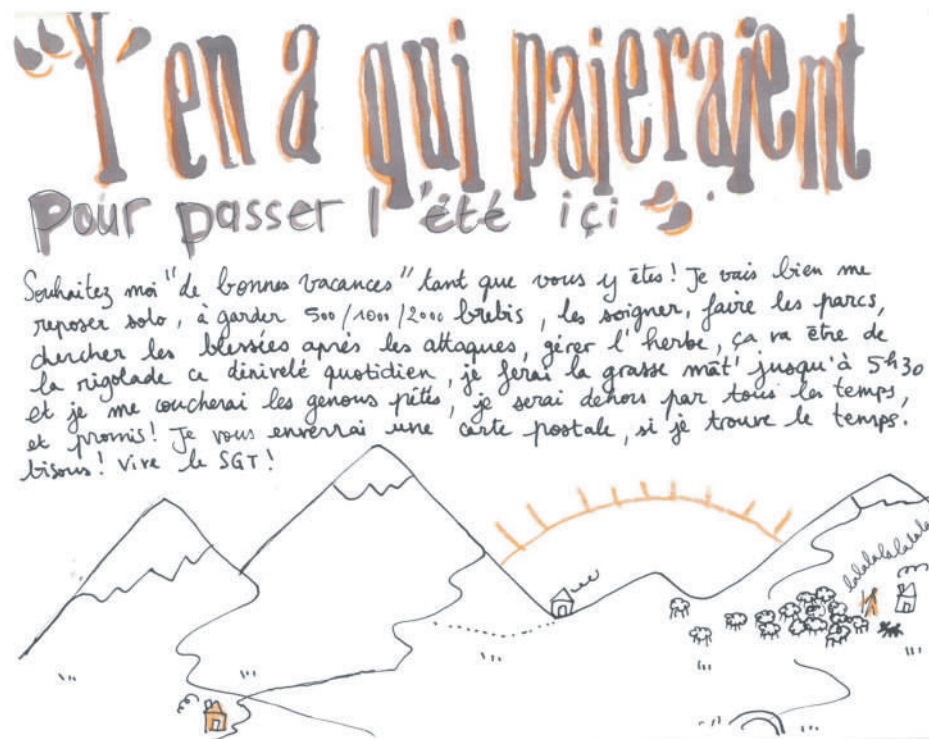 "Y'en a qui paieraient
Pour passer l'été içi".
Souhaitez moi "de bonnes vacances" tant que vous y êtes! Je vais bien me
reposer solo, à garder 500/1000/2000 brebis, les soigner, faire les parcs,
chercher les blessées après les attaques, gérer l'herbe, ça va être de
la rigolade ce dénivelé quotidien, je ferai la grasse mat' jusqu'à 5h30
et je me coucherai les genous pétés, je serai dehors par tous les temps,
et promis! Je vous enverrai une carte postale, si je trouve le temps.
bisous! Vive le SGT!
lalalalalalala